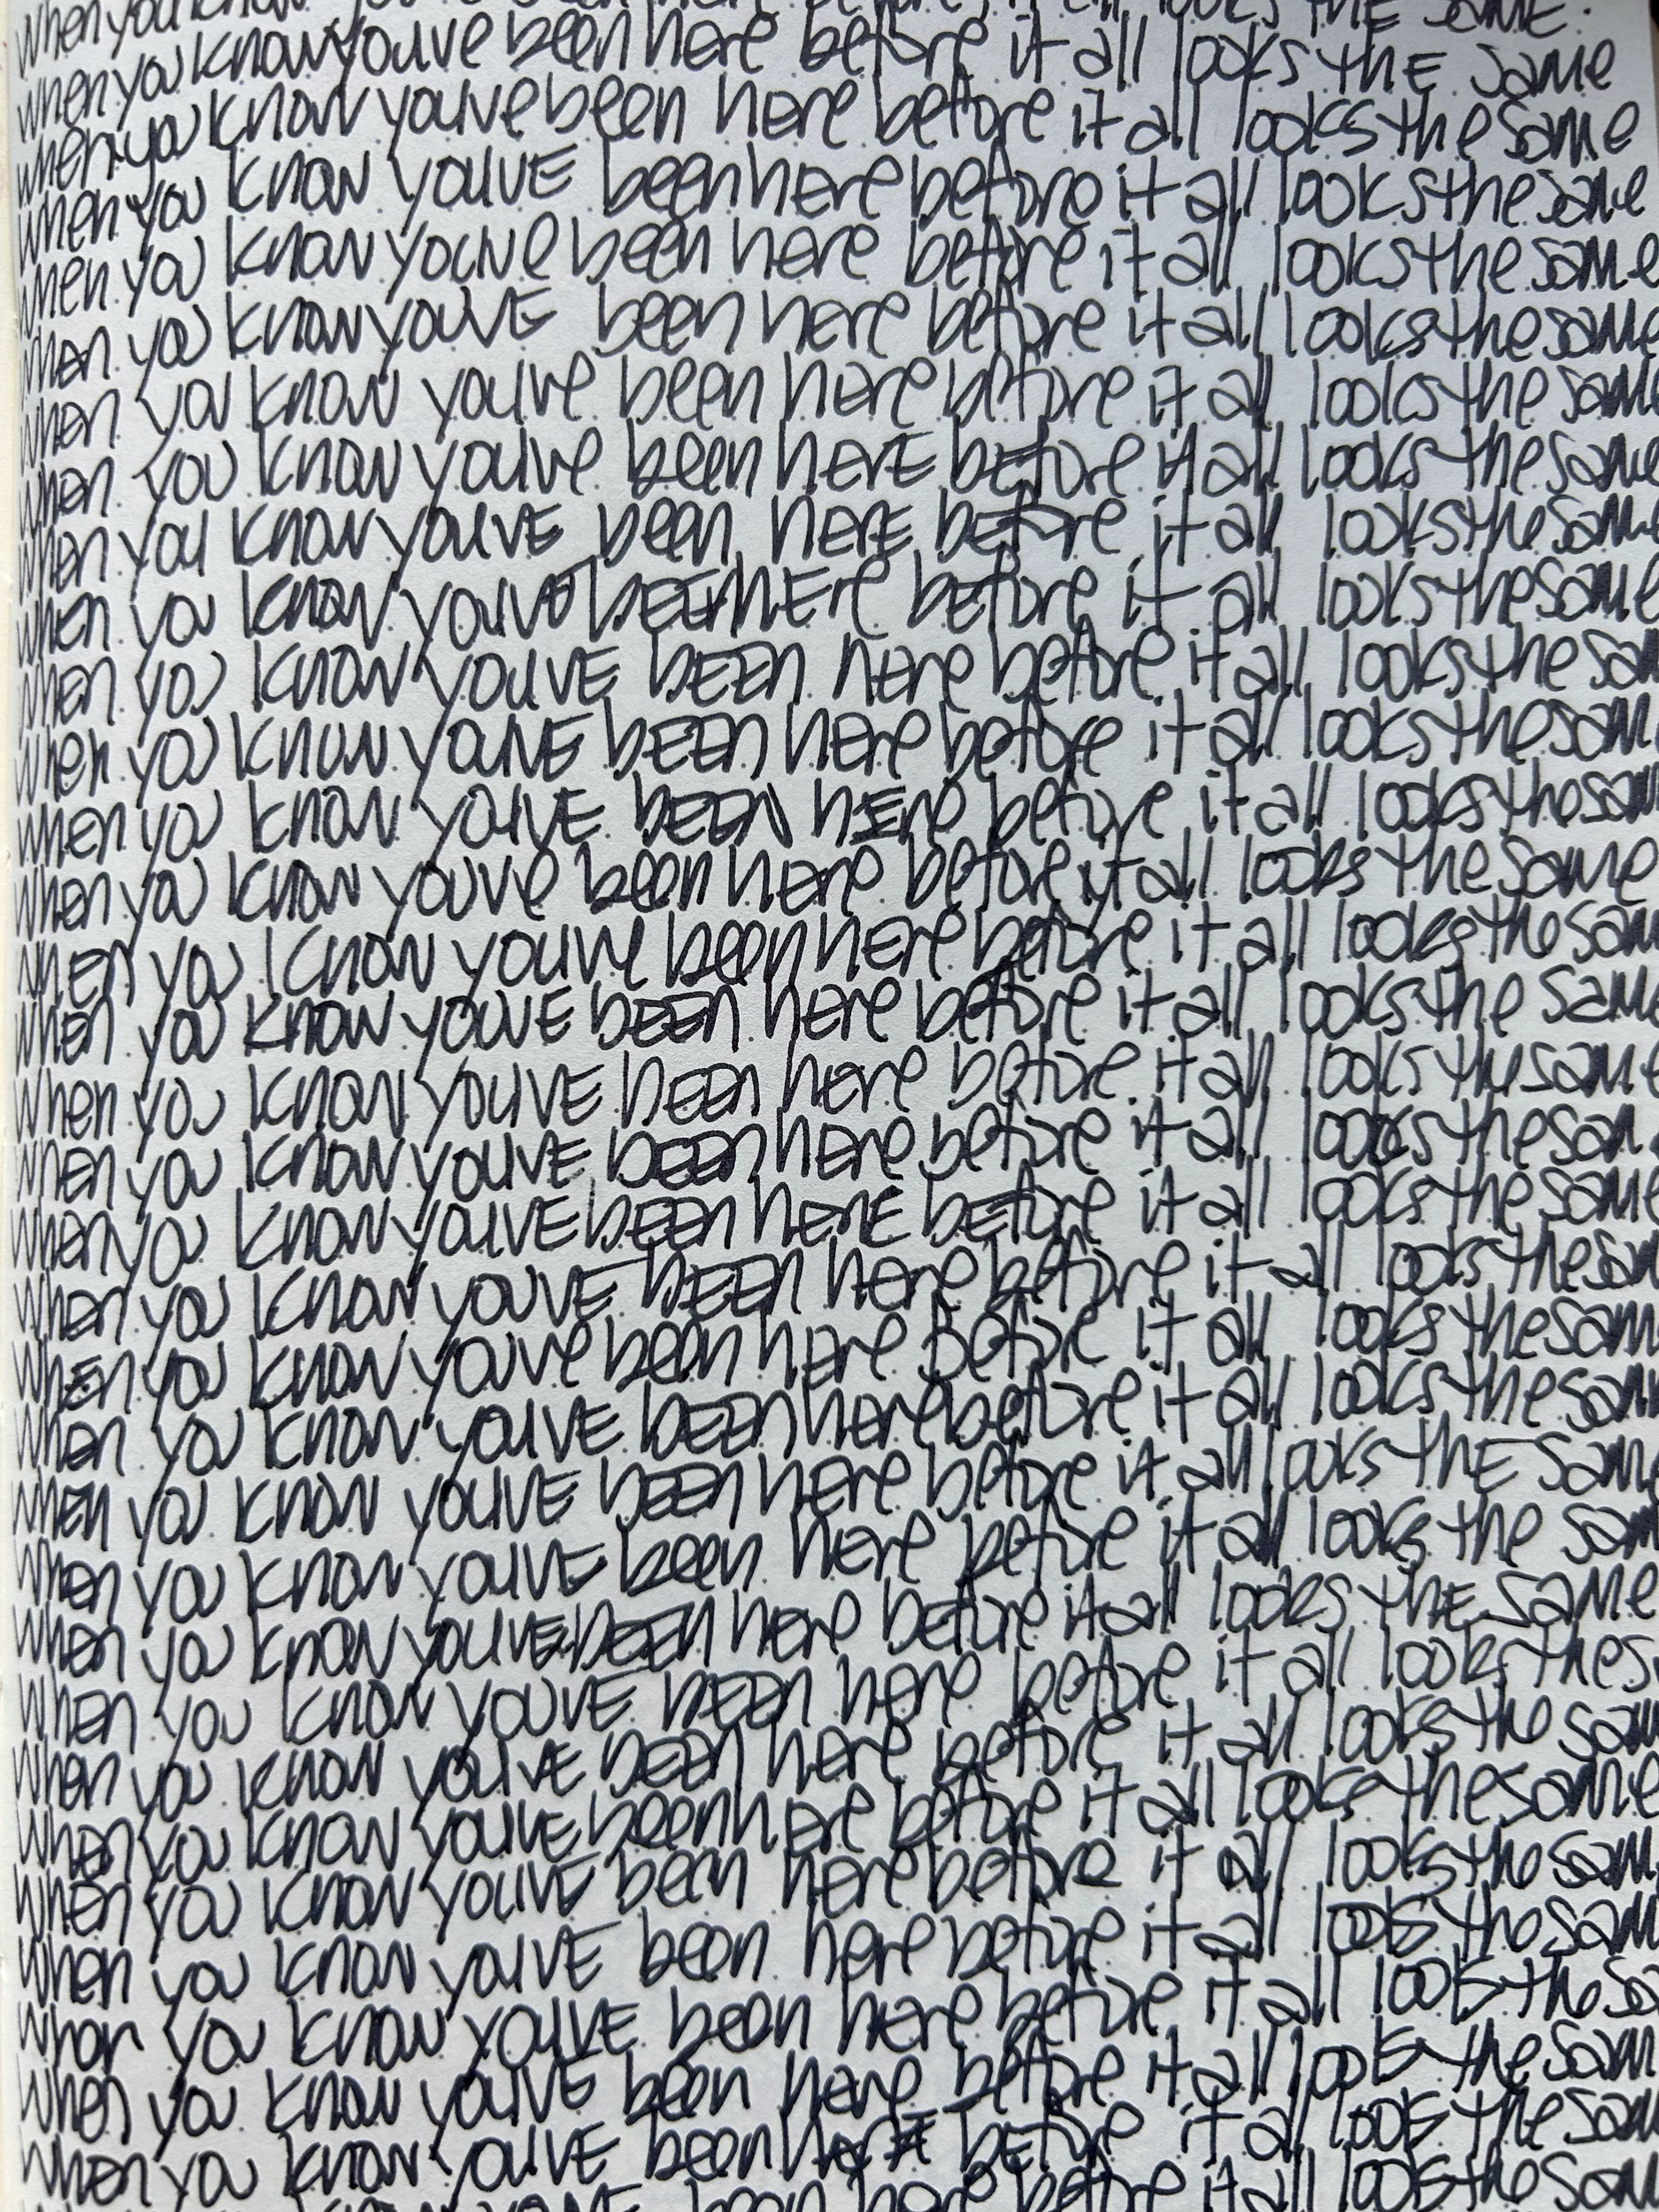 When you know you've been here before it all looks THE SAME.
when you know you've been here before it all looks THE same
when you know you've been here before it all looks the same
when you know you'VE been here before it all looks the same
when you know you've been here before it all looks the same
when you know you'VE been here before it all looks the same
when you know you've been here before it all looks the same
when you know you've been herE before it all looks the same
when you know you'VE been herE before it all looks the same
when you know you've bEEn hEre before it all looks the same
when you know you'VE bEEn here before it all looks the sam
when you know you'VE bEEn here before it all looks the sam
when you know you'VE bEEN hEre before it all looks the sam
when you know you've been here before it all looks the same
when you know you've been hEre before it all looks the sam
when you know you'VE bEEn here before it all looks the same
when you know you'VE been here before it all looks the same
when you know you'VE been here before it all looks the sam
when you know you'VE bEEn herE bEfore it all looks the same
when you know you'VE bEEn here before it all looks the sam
whEn you know you've been here Before it all looks the sam
when you know you'VE bEEn here before it all looks the sam
when you know you'VE bEEn here before it all looks thE sam
when you know you'VE been here before it all looks the sam
when you know you'VE bEEn here before it all looks thE same
when you know you'VE bEEn here before it all looks the s
when you know you'VE bEEn here before it all looks the sam
when you know you'VE been here before it all looks the same
when you know you'VE been here before it all looks the sam
when you know you'VE been here before it all looks the sam
when you know you'VE been here before it all looks the sa
when you know you'VE been here before it all looks the sam
when you know you'VE been here before it all looks the sam
been here before it all looks the sam